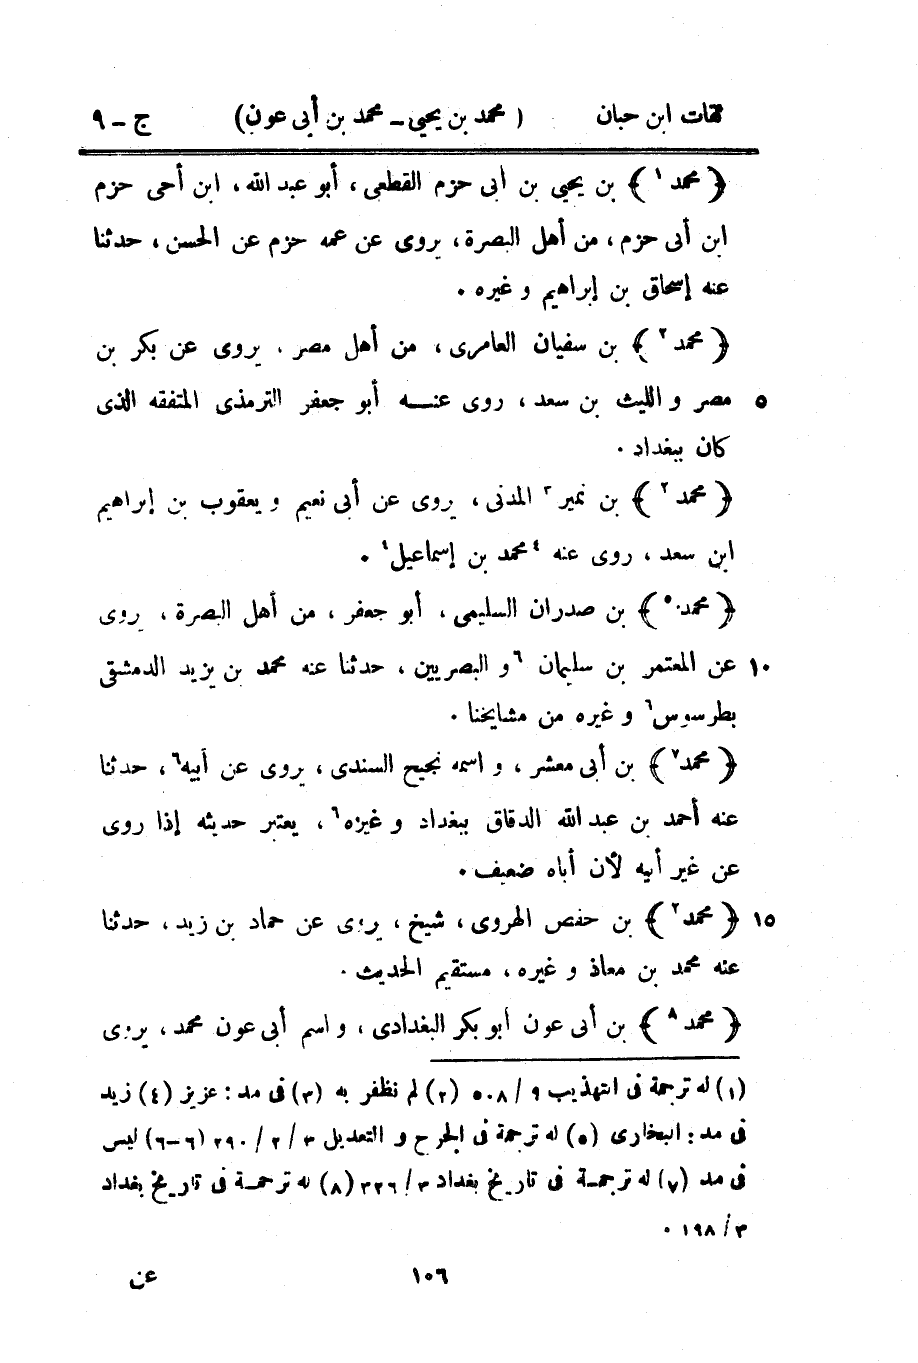 ثقات ابن حبان ( محمد بن يحيى - محمد بن أبى عون ) ج - ٩
﴿ محمد ١ ﴾ بن يحيى بن أبى حزم القطعى ، أبو عبد الله ، ابن أخى حزم
ابن أبى حزم ، من أهل البصرة ، يروى عن عمه حزم عن الحسن ، حدثنا
عنه إسحاق بن إبراهيم و غيره .
﴿ محمد ٢ ﴾ بن سفيان العامرى ، من أهل مصر ، يروى عن بكر بن
٥ مضر و الليث بن سعد ، روى عنه أبو جعفر الترمذى المتفقه الذى
كان ببغداد .
﴿ محمد ٢ ﴾ بن نمير ٣ المدنى ، يروى عن أبى نعيم و يعقوب بن إبراهيم
ابن سعد ، روى عنه ٤ محمد بن إسماعيل ٤ .
﴿ محمد ٥ ﴾ بن صدران السليمى ، أبو جعفر ، من أهل البصرة ، يروى
١٠ عن المعتمر بن سليمان ٦ و البصريين ، حدثنا عنه محمد بن يزيد الدمشقى
بطرسوس ٦ و غيره من مشايخنا .
﴿ محمد ٧ ﴾ بن أبى معشر ، و اسمه نجيح السندى ، يروى عن أبيه ٦ ، حدثنا
عنه أحمد بن عبد الله الدقاق ببغداد و غيره ٦ ، يعتبر حديثه إذا روى
عن غير أبيه لأن أباه ضعيف .
١٥ ﴿ محمد ٢ ﴾ بن حفص الهروى ، شيخ ، يروى عن حماد بن زيد ، حدثنا
عنه محمد بن معاذ و غيره ، مستقيم الحديث .
﴿ محمد ٨ ﴾ بن أبى عون أبو بكر البغدادى ، و اسم أبى عون محمد ، يروى
(١) له ترجمة فى التهذيب ٩ / ٥٠٨ (٢) لم نظفر به (٣) فى مد : عزيز (٤) زيد
فى مد : البخارى (٥) له ترجمة فى الجرح و التعديل ٣ / ٢ / ٢٩٠ (٦-٦) ليس
فى مد (٧) له ترجمة فى تاريخ بغداد ٣ / ٣٢٦ (٨) له ترجمة فى تاريخ بغداد
٣ / ١٩٨ .
١٠٦ عن